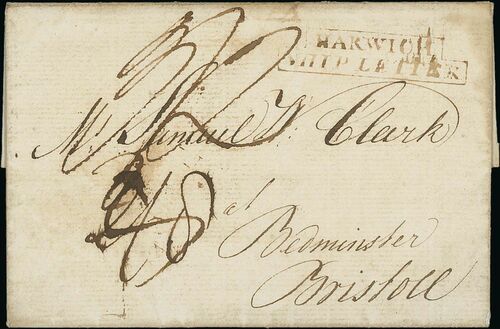 HARWICH
SHIP LETTER
Mr. Samuel W. Clark
at
Bedminster
Bristoll